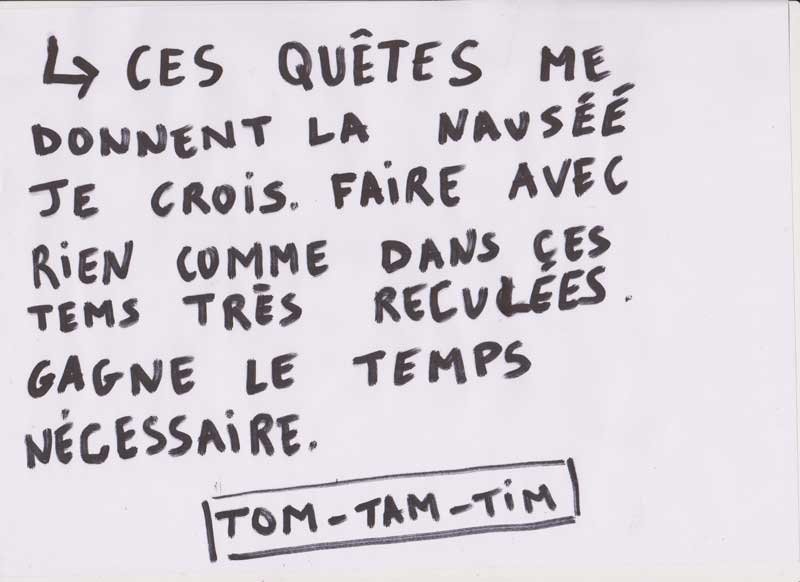 ↳ CES QUÊTES ME
DONNENT LA NAUSÉÉ
JE CROIS. FAIRE AVEC
RIEN COMME DANS ÇES
TEMS TRÈS RECULÉES.
GAGNE LE TEMPS
NÉCESSAIRE.
TOM-TAM-TIM